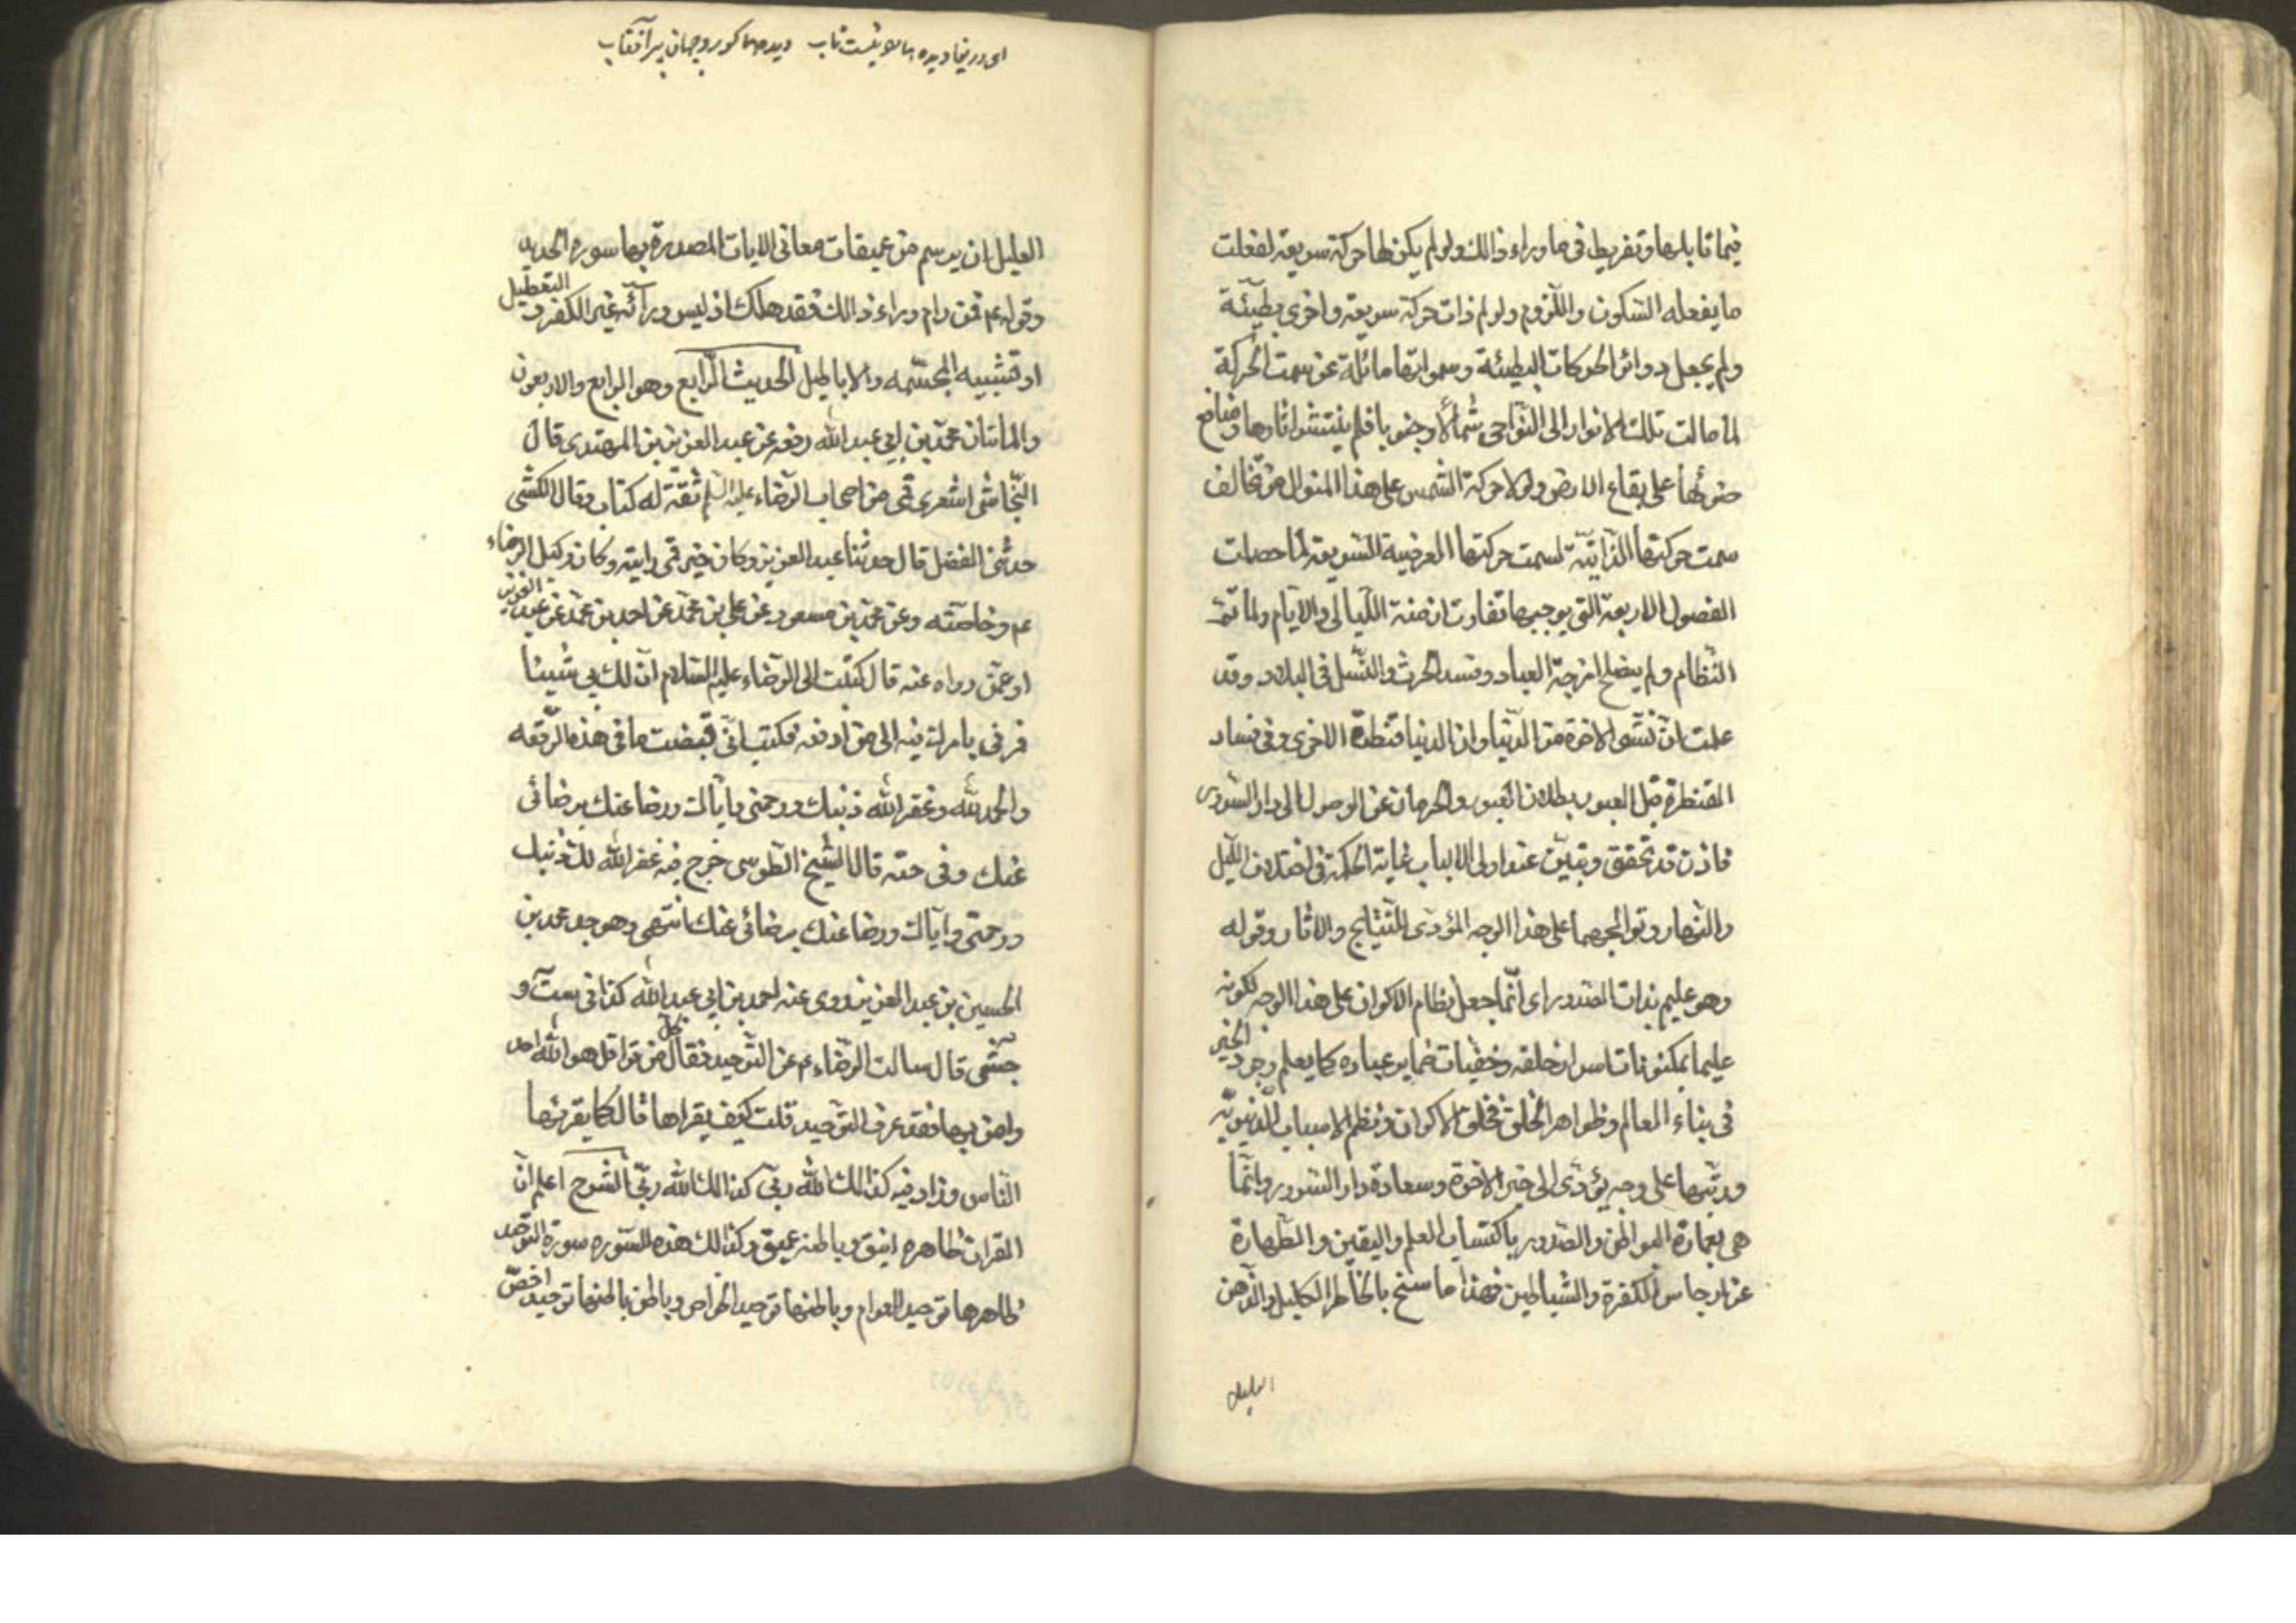 فيما قابلها وتفريط في ما وراء ذالك ولو لم يكن لها حركة سريعة لفعلت
ما يفعله السكون واللزوم ولو لم ذات حركة سريعة واخرى بطيئة
ولم يجعل دوائر الحركات البطيئة وسمواتها مائلة عن سمت الحركة
لما مالت تلك الانوار الى النواحى شمالا وجنوبا فلم ينتشر اثارها ومنافع
ضوئها على بقاع الارض ولولا حركة الشمس على هذا المنوال من تخالف
سمت حركتها الذاتية لسمت حركتها العرضية السريعة لما حصلت
الفصول الاربعة التي يوجبها تفاوت ازمنة الليالى والايام ولما تم
النظام ولم يصلح امزجة العباد وفسد الحرث والنسل فى البلاد وقد
علمت ان نشو الاخرة من الدنيا وان الدنيا قنطرة الاخرى وفى فساد
القنطرة قبل العبور بطلان العبور والحرمان عن الوصول الى دار السرور
فاذن قد تحقق وتبين عند اولى الالباب غاية الحكمة فى اختلاف الليل
والنهار وتوالجهما على هذا الوجه المؤدى للنتايج والاثار وقوله
وهو عليم بذات الصدور اى انما جعل نظام الاكوان على هذا الوجه لكونه
عليما بمكنونات اسرار خلقه وخفيات ضماير عباده كما يعلم وجوه الخير
فى بناء العالم وظواهر الخلق فخلق الاكوان ونظم الاسباب الدنيوية
ورتبها على وجه يؤدى الى خير الاخرة وسعادة دار السرور وانما
هى بعمارة البواطن والصدور باكتساب العلم واليقين والطهارة
عن ارجاس الكفرة والشياطين فهذا ما سنح بالخاطر الكليل والذهن
العليل
اى دريغا ديده ها را نيست تاب ديده ها كور و جهان پر آفتاب
العليل ان يرسم من عميقات معانى الايات المصدرة بها سوره الحديد
وقوله عم فمن رام وراء ذالك فقد هلك اذ ليس ورائه غير الكفر و التعطيل
او تشبيه المجسمه والاباطيل الحديث الرابع وهو الرابع والاربعون
والمائتان محمد بن ابي عبد الله رفعه عن عبد العزيز بن المهتدى قال
النجاشى اشعرى قمى من اصحاب الرضاء عليه السلم ثقة له كتاب وقال الكشى
حدثنى الفضل قال حدثنا عبد العزيز وكان خير قمى رايته وكان وكيل الرضاء
عم وخاصته وعن محمد بن مسعود عن على بن محمد عن احمد بن محمد عن عبد العزيز
او عمن رواه عنه قال كتبت الى الرضاء عليه السلام ان لك بي شيئا
فرنى بامرك فيه الى من ادفعه فكتب انى قبضت ما فى هذه الرقعه
والحمد لله وغفر الله ذنبك ورحمنى واياك ورضا عنك برضائى
عنك وفى حقه قال الشيخ الطوسى خرج فيه غفر الله لك ذنبك
ورحمنى واياك ورضا عنك برضائى عنك انتهى وهو جد محمد بن
الحسين بن عبد العزيز روى عنه احمد بن ابى عبد الله كذا فى ست و
جش قال سالت الرضاء عم عن التوحيد فقال كل من قرا قل هو الله احد
وامن بها فقد عرف التوحيد قلت كيف يقراها قال كما يقرئها
الناس وزاد فيه كذالك الله ربى كذالك الله ربى الشرح اعلم ان
القران ظاهره انيق وباطنه عميق وكذالك هذه السوره سورة التوحيد
ظاهرها توحيد العوام وباطنها توحيد الخواص وباطن باطنها توحيد اخص